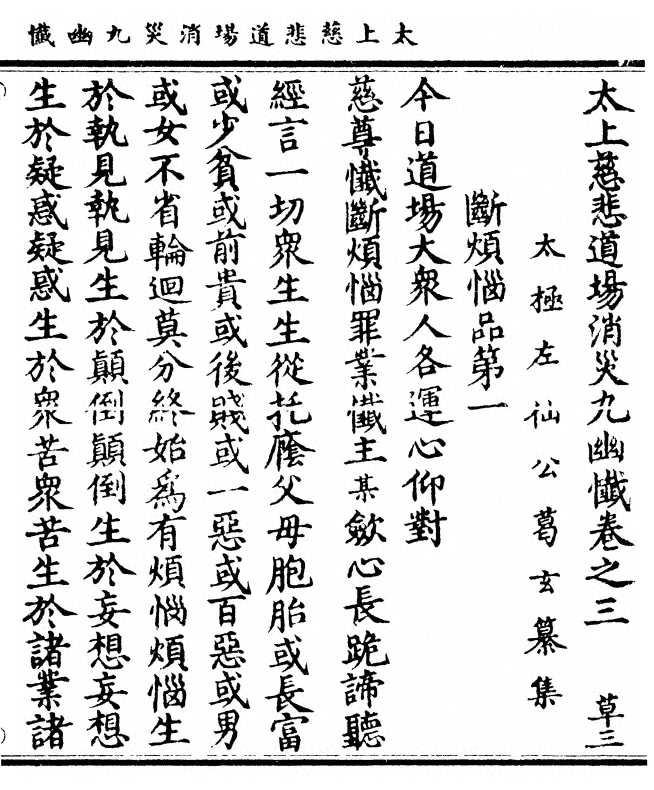 太上慈悲道場消災九幽懺
太上慈悲道場消災九幽懺卷之三 草三
太極左仙公葛玄纂集
斷煩惱品第一
今日道場大衆人各運心仰對
慈尊懺斷煩惱罪業懺主某歛心長跪諦聽
經言一切衆生生從托廕父母胞胎或長富
或少貧或前貴或後賤或一惡或百惡或男
或女不省輪迴莫分終始爲有煩惱煩惱生
於執見執見生於顛倒顛倒生於妄想妄想
生於疑惑疑惑生於衆苦衆苦生於諸業諸